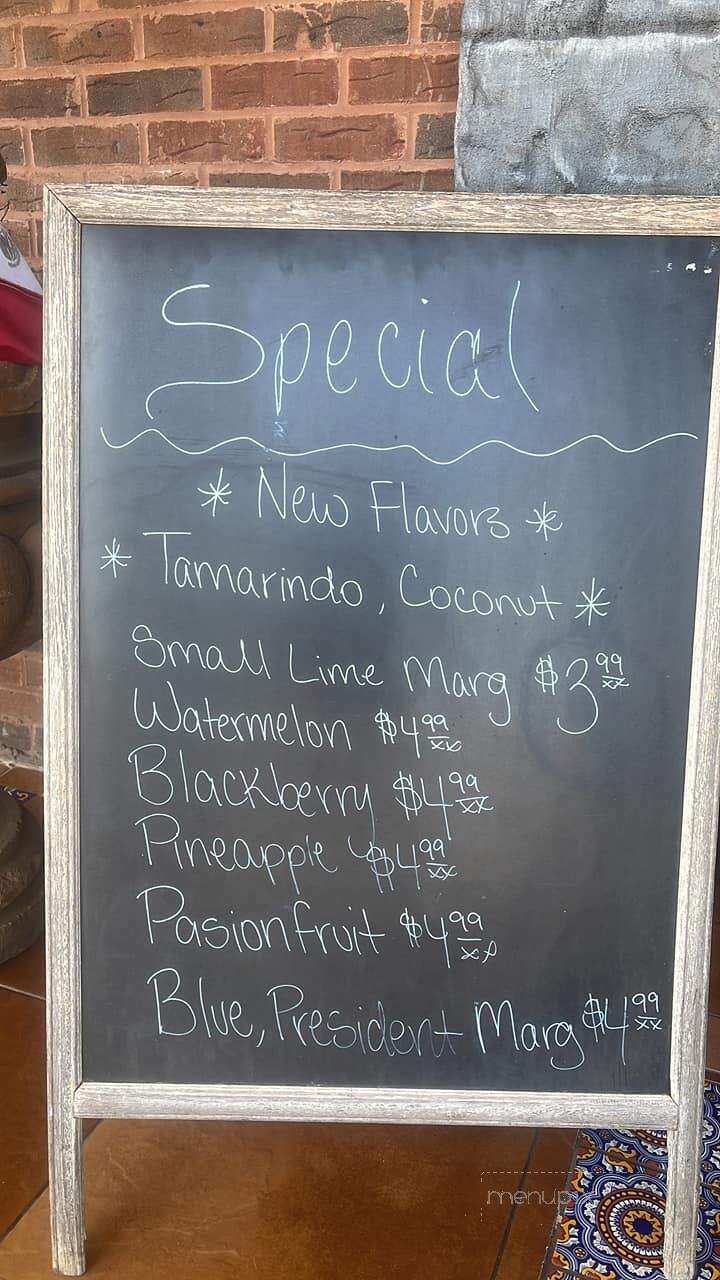 Special
* New Flavors *
* Tamarindo, Coconut *
Small Lime Marg $3 99/xx
Watermelon $4 99/xx
Blackberry $4 99/xx
Pineapple $4 99/xx
Pasionfruit $4 99/xx
Blue, President Marg $4 99/xx
menup